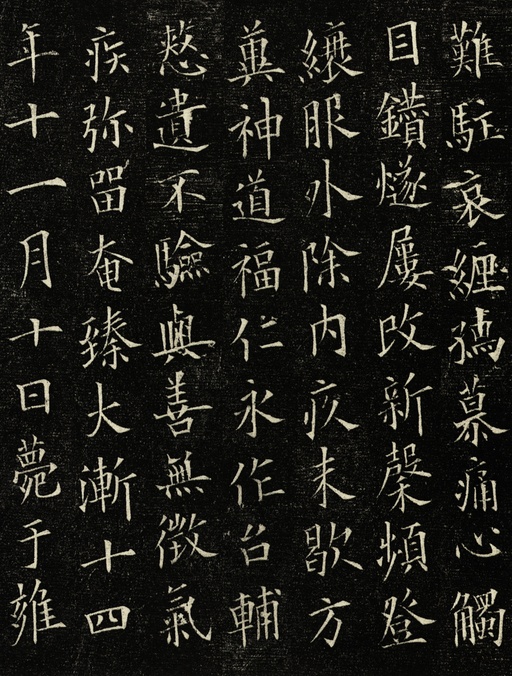 難駐哀纏慕痛心觸
目鑽燧屢改新馨頻登
縗服外除内疚未歇方
冀神道福仁永作台輔
憗遺不驗與善無徵氣
疾弥留奄臻大漸十四
年十一月十日薨于雍